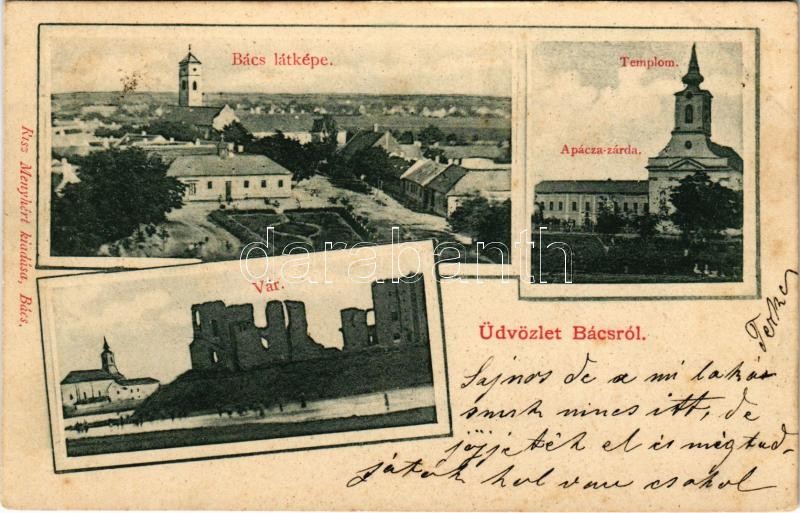 Bács látképe.
Templom.
Apácza-zárda.
Vár.
Risz Menyhért kiadása, Bács.
darabanth
Üdvözlet Bácsról.
Sajnos de a mi laká-
sunk nincs itt, de
jöjjeték el és megtud-
játok hol van csakol
Terke